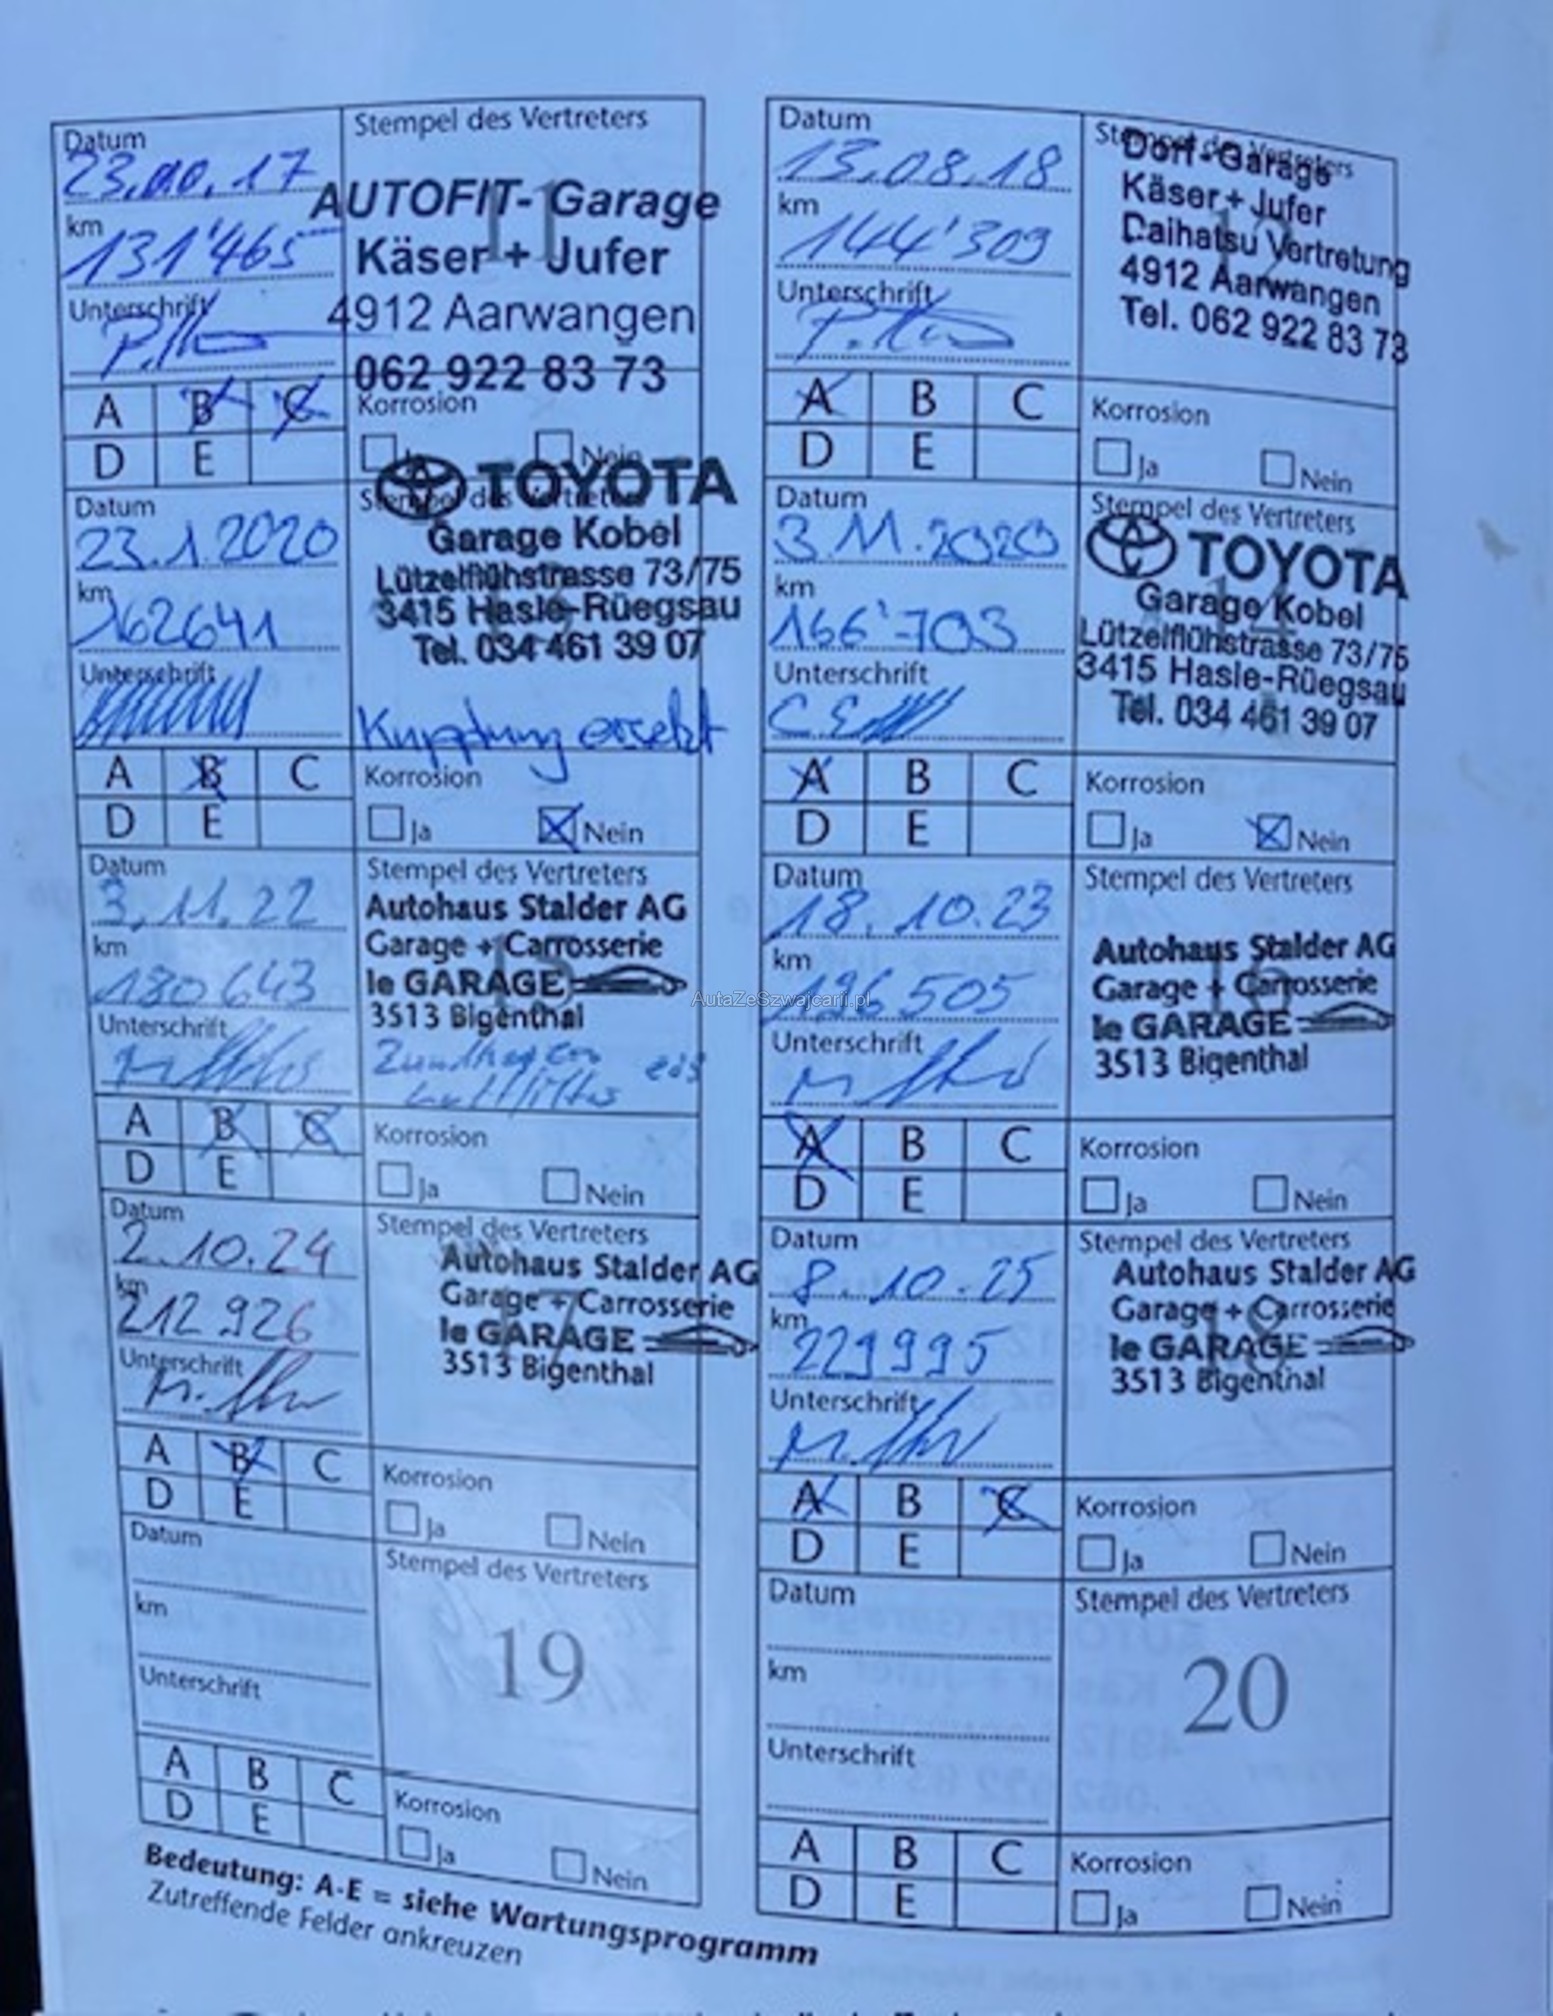 Datum
23.10.17
km
131'465
Unterschrift
Stempel des Vertreters
11
AUTOFIT- Garage
Käser + Jufer
4912 Aarwangen
062 922 83 73
A B C
D E
Korrosion
Ja Nein
Datum
13.08.18
km
144'309
Unterschrift
Stempel des Vertreters
12
Dorf-Garage
Käser + Jufer
Daihatsu Vertretung
4912 Aarwangen
Tel. 062 922 83 73
A B C
D E
Korrosion
Ja Nein
Datum
23.1.2020
km
162641
Unterschrift
Stempel des Vertreters
13
TOYOTA
Garage Kobel
Lützelflühstrasse 73/75
3415 Hasle-Rüegsau
Tel. 034 461 39 07
Kupplung ersetzt
A B C
D E
Korrosion
Ja Nein
Datum
3.11.2020
km
166'703
Unterschrift
Stempel des Vertreters
14
TOYOTA
Garage Kobel
Lützelflühstrasse 73/75
3415 Hasle-Rüegsau
Tel. 034 461 39 07
A B C
D E
Korrosion
Ja Nein
Datum
3.11.22
km
180643
Unterschrift
Stempel des Vertreters
15
Autohaus Stalder AG
Garage + Carrosserie
le GARAGE
3513 Bigenthal
A B C
D E
Korrosion
Ja Nein
Datum
18.10.23
km
196505
Unterschrift
Stempel des Vertreters
16
Autohaus Stalder AG
Garage + Carrosserie
le GARAGE
3513 Bigenthal
AutaZeSzwajcarii.pl
A B C
D E
Korrosion
Ja Nein
Datum
2.10.24
km
212926
Unterschrift
Stempel des Vertreters
17
Autohaus Stalder AG
Garage + Carrosserie
le GARAGE
3513 Bigenthal
A B C
D E
Korrosion
Ja Nein
Datum
8.10.25
km
229995
Unterschrift
Stempel des Vertreters
18
Autohaus Stalder AG
Garage + Carrosserie
le GARAGE
3513 Bigenthal
A B C
D E
Korrosion
Ja Nein
Datum
km
Unterschrift
Stempel des Vertreters
19
A B C
D E
Korrosion
Ja Nein
Datum
km
Unterschrift
Stempel des Vertreters
20
A B C
D E
Korrosion
Ja Nein
Bedeutung: A-E = siehe Wartungsprogramm
Zutreffende Felder ankreuzen